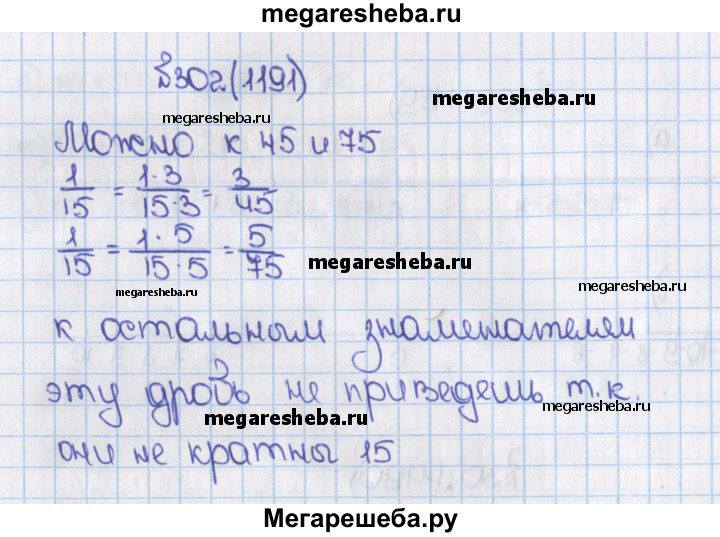 megaresheba.ru
№302(1191)
megaresheba.ru
megaresheba.ru
Можно к 45 и 75
1/15 = 1·3/15·3 = 3/45
1/15 = 1·5/15·5 = 5/75
megaresheba.ru
megaresheba.ru
к остальным знаменателям
эту дробь не приведешь т.к.
megaresheba.ru
megaresheba.ru
они не кратны 15
Мегарешеба.ру